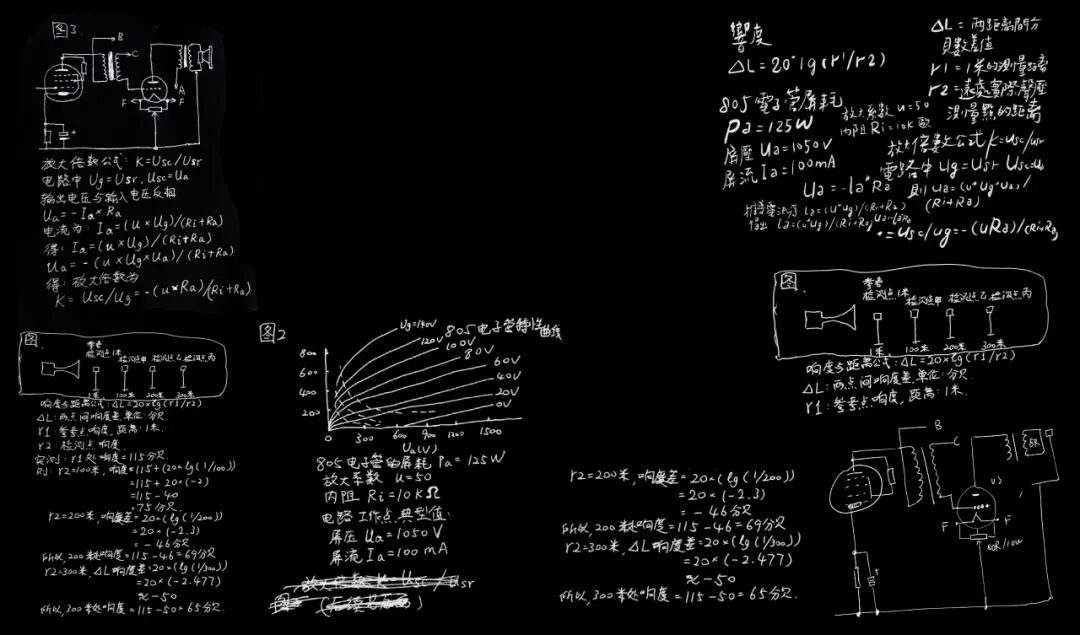 图3.
B
C
A
F F
放大倍数公式: K=Usc/Usr
电路中 Ug=Usr, Usc=Ua
输出电压与输入电压反相
Ua=-Ia×Ra
电流为: Ia=(u×Ug)/(Ri+Ra)
得: Ia=(u×Ug)/(Ri+Ra)
Ua=-(u×Ug×Ua)/(Ri+Ra)
得: 放大倍数为
K=Usc/Ug=-(u*Ra)/(Ri+Ra)
图.
参考
检测点1米 检测点甲 检测点乙 检测点丙
1米 100米 200米 300米
响度与距离公式: ΔL=20×lg(r1/r2)
ΔL: 两点间响度差, 单位: 分贝.
r1: 参考点响度, 距离: 1米.
r2: 检测点响度.
实测: r1处响度=115分贝
则: r2=100米, 响度=115+(20×lg(1/100))
=115+20×(-2)
=115-40
=75分贝
r2=200米, 响度差=20×(lg(1/200))
=20×(-2.3)
=-46分贝
所以, 200米处响度=115-46=69分贝
r2=300米, ΔL响度差=20×(lg(1/300))
=20×(-2.477)
≈-50
所以, 300米处响度=115-50=65分贝.
图2
805电子管特性曲线
Ug=140V
120V
100V
80V
60V
40V
20V
0V
800
600
400
200
0 300 600 900 1200 1500
Ua(V)
805电子管的屏耗 Pa=125W
放大系数 u=50
内阻 Ri=10KΩ
电路工作点典型值:
屏压 Ua=1050V
屏流 Ia=100mA
放大倍数 K=Usc/Usr
響度
ΔL=20*lg(r1/r2)
ΔL=两距離間分
貝數差值
r1=1米的測量距離
r2=遠處實際聲壓
測量點的距离
805電子管屏耗
Pa=125W
屏壓 Ua=1050V
屏流 Ia=100mA
放大系數 u=50
内阻 Ri=10K欧
放大倍數公式 K=Usc/usr
電路中 Ug=Usr Usc=Ua
Ua=-Ia*Ra
則 Ua=(u*Ug*Ua)/
(Ri+Ra)
Ia=(u*Ug)/(Ri+Ra)
Ia=(u*Ug)/(Ri+Ra) Ua=-IaRa
=Usc/ug=-(uRa)/(Ri+Ra)
图.
参考
检测点1米 检测点甲 检测点乙 检测点丙
1米 100米 200米 300米
响度与距离公式: ΔL=20×lg(r1/r2)
ΔL: 两点间响度差, 单位: 分贝.
r1: 参考点响度, 距离: 1米.
r2=200米, 响度差=20×(lg(1/200))
=20×(-2.3)
=-46分贝
所以, 200米处响度=115-46=69分贝
r2=300米, ΔL响度差=20×(lg(1/300))
=20×(-2.477)
≈-50
所以, 300米处响度=115-50=65分贝.
B
C
8R
F F